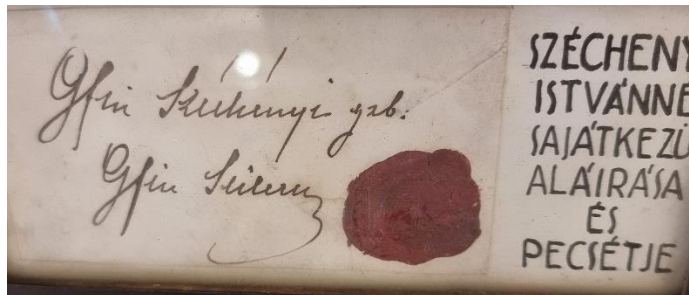 Gfin Széchényi geb.
Gfin Seilern
SZÉCHENY
ISTVÁNNÉ
SAJÁTKEZŰ
ALÁIRÁSA
ÉS
PECSÉTJE